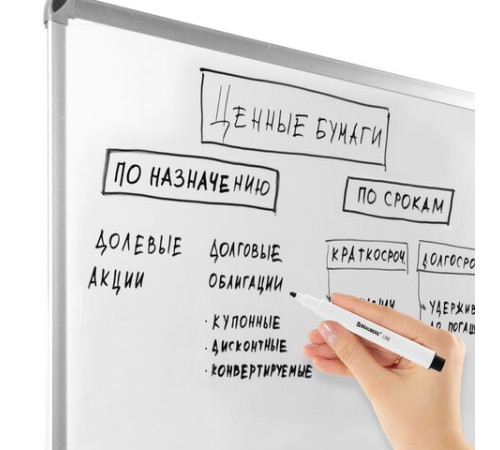 ЦЕННЫЕ БУМАГИ
ПО НАЗНАЧЕНИЮ
ДОЛЕВЫЕ
АКЦИИ
ДОЛГОВЫЕ
ОБЛИГАЦИИ
· КУПОННЫЕ
· ДИСКОНТНЫЕ
· КОНВЕРТИРУЕМЫЕ
ПО СРОКАМ
КРАТКОСРОЧ
ДОЛГОСРО
УДЕРЖИВ
ДО ПОГАШ
BRAUBERG LINE